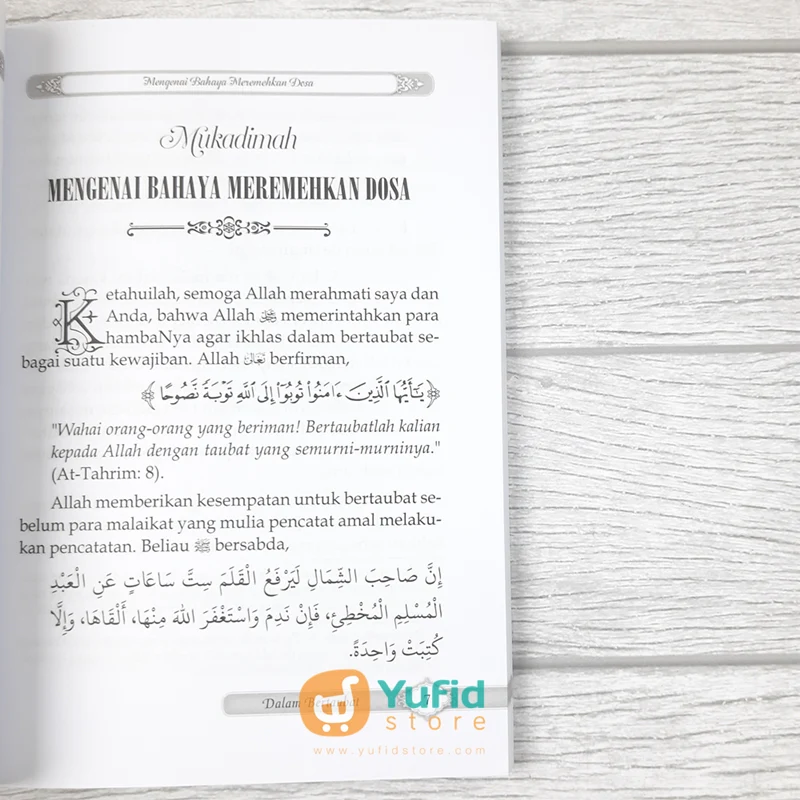 Mengenai Bahaya Meremehkan Dosa
Mukadimah
MENGENAI BAHAYA MEREMEHKAN DOSA
Ketahuilah, semoga Allah merahmati saya dan
Anda, bahwa Allah ﷻ memerintahkan para
hambaNya agar ikhlas dalam bertaubat se-
bagai suatu kewajiban. Allah تَعَالَى berfirman,
﴿ يَـٰٓأَيُّهَا ٱلَّذِينَ ءَامَنُوا۟ تُوبُوٓا۟ إِلَى ٱللَّهِ تَوْبَةً نَّصُوحًا ﴾
"Wahai orang-orang yang beriman! Bertaubatlah kalian
kepada Allah dengan taubat yang semurni-murninya."
(At-Tahrim: 8).
Allah memberikan kesempatan untuk bertaubat se-
belum para malaikat yang mulia pencatat amal melaku-
kan pencatatan. Beliau ﷺ bersabda,
إِنَّ صَاحِبَ الشِّمَالِ لَيَرْفَعُ الْقَلَمَ سِتَّ سَاعَاتٍ عَنِ الْعَبْدِ
الْمُسْلِمِ الْمُخْطِئِ، فَإِنْ نَدِمَ وَاسْتَغْفَرَ اللهَ مِنْهَا، أَلْقَاهَا، وَإِلَّا
كُتِبَتْ وَاحِدَةً.
Dalam Bertaubat 7
Yufid
store
www.yufidstore.com